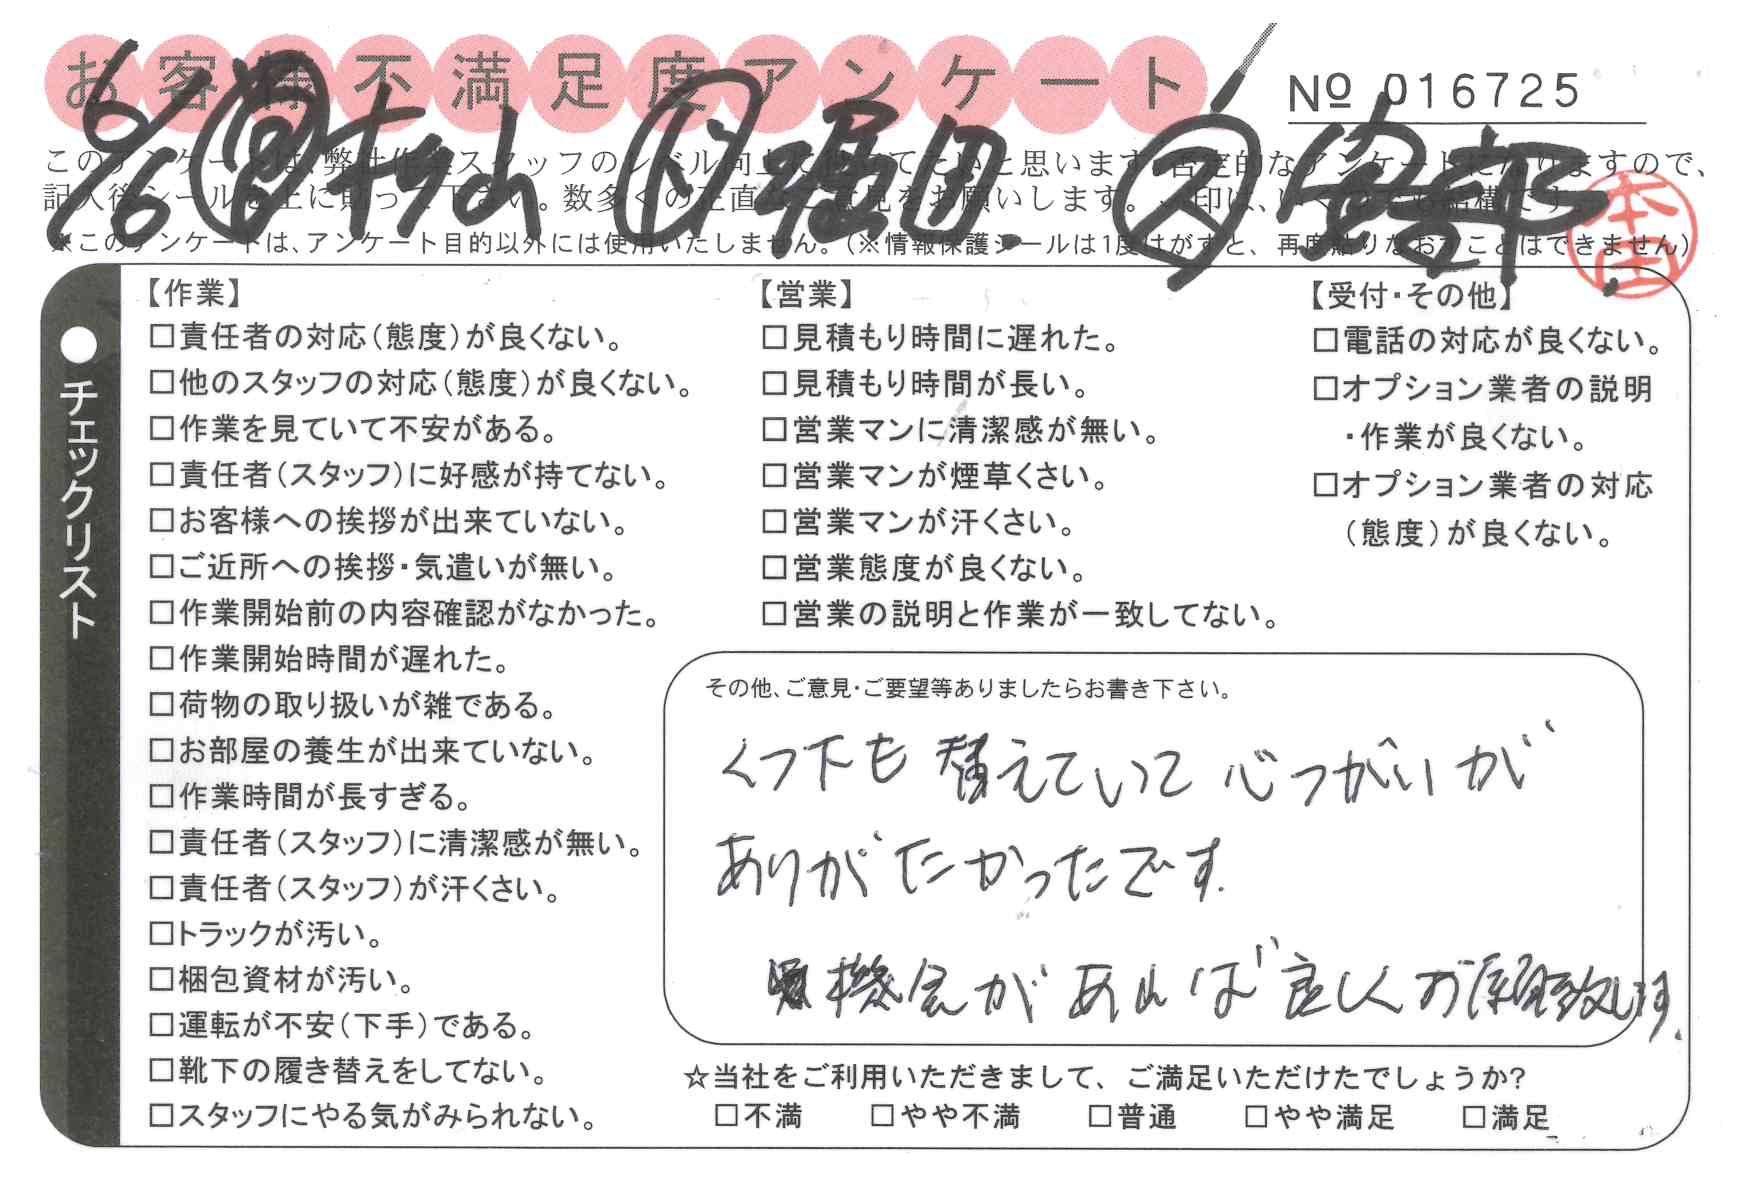 お客様不満足度アンケート
№ 016725
6/6 堀田 安部
このアンケートは、弊社作業スタッフのレベル向上に役立てたいと思います。否定的なアンケートになりますので、
記入後シールを上に貼って下さい。数多くの正直なご意見をお願いします。✓印は、いくつでも結構です。
※このアンケートは、アンケート目的以外には使用いたしません。(※情報保護シールは1度はがすと、再度貼りなおすことはできません)
本田
●チェックリスト
【作業】
□責任者の対応(態度)が良くない。
□他のスタッフの対応(態度)が良くない。
□作業を見ていて不安がある。
□責任者(スタッフ)に好感が持てない。
□お客様への挨拶が出来ていない。
□ご近所への挨拶・気遣いが無い。
□作業開始前の内容確認がなかった。
□作業開始時間が遅れた。
□荷物の取り扱いが雑である。
□お部屋の養生が出来ていない。
□作業時間が長すぎる。
□責任者(スタッフ)に清潔感が無い。
□責任者(スタッフ)が汗くさい。
□トラックが汚い。
□梱包資材が汚い。
□運転が不安(下手)である。
□靴下の履き替えをしてない。
□スタッフにやる気がみられない。
【営業】
□見積もり時間に遅れた。
□見積もり時間が長い。
□営業マンに清潔感が無い。
□営業マンが煙草くさい。
□営業マンが汗くさい。
□営業態度が良くない。
□営業の説明と作業が一致してない。
【受付・その他】
□電話の対応が良くない。
□オプション業者の説明
・作業が良くない。
□オプション業者の対応
(態度)が良くない。
その他、ご意見・ご要望等ありましたらお書き下さい。
くつ下も替えていて心づかいが
ありがたかったです.
機会があれば良しくお願い致します.
☆当社をご利用いただきまして、ご満足いただけたでしょうか?
□不満 □やや不満 □普通 □やや満足 □満足